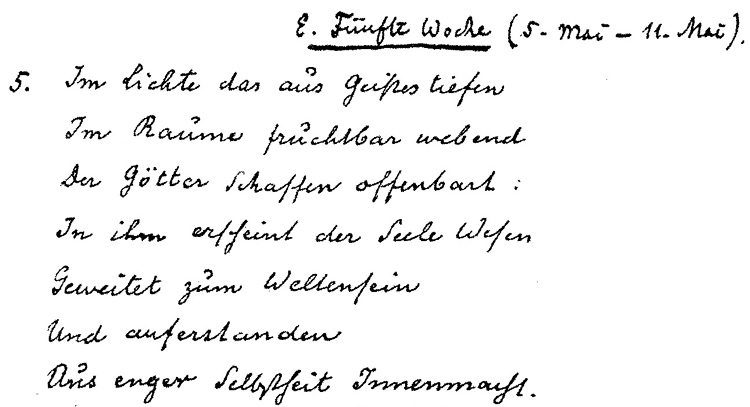 E. Fünfte Woche (5. Mai – 11. Mai).
5. Im Lichte das aus Geistestiefen
Im Raume fruchtbar webend
Der Götter Schaffen offenbart:
In ihm erscheint der Seele Wesen
Geweitet zum Weltensein
Und auferstanden
Aus enger Selbstheit Innenmacht.